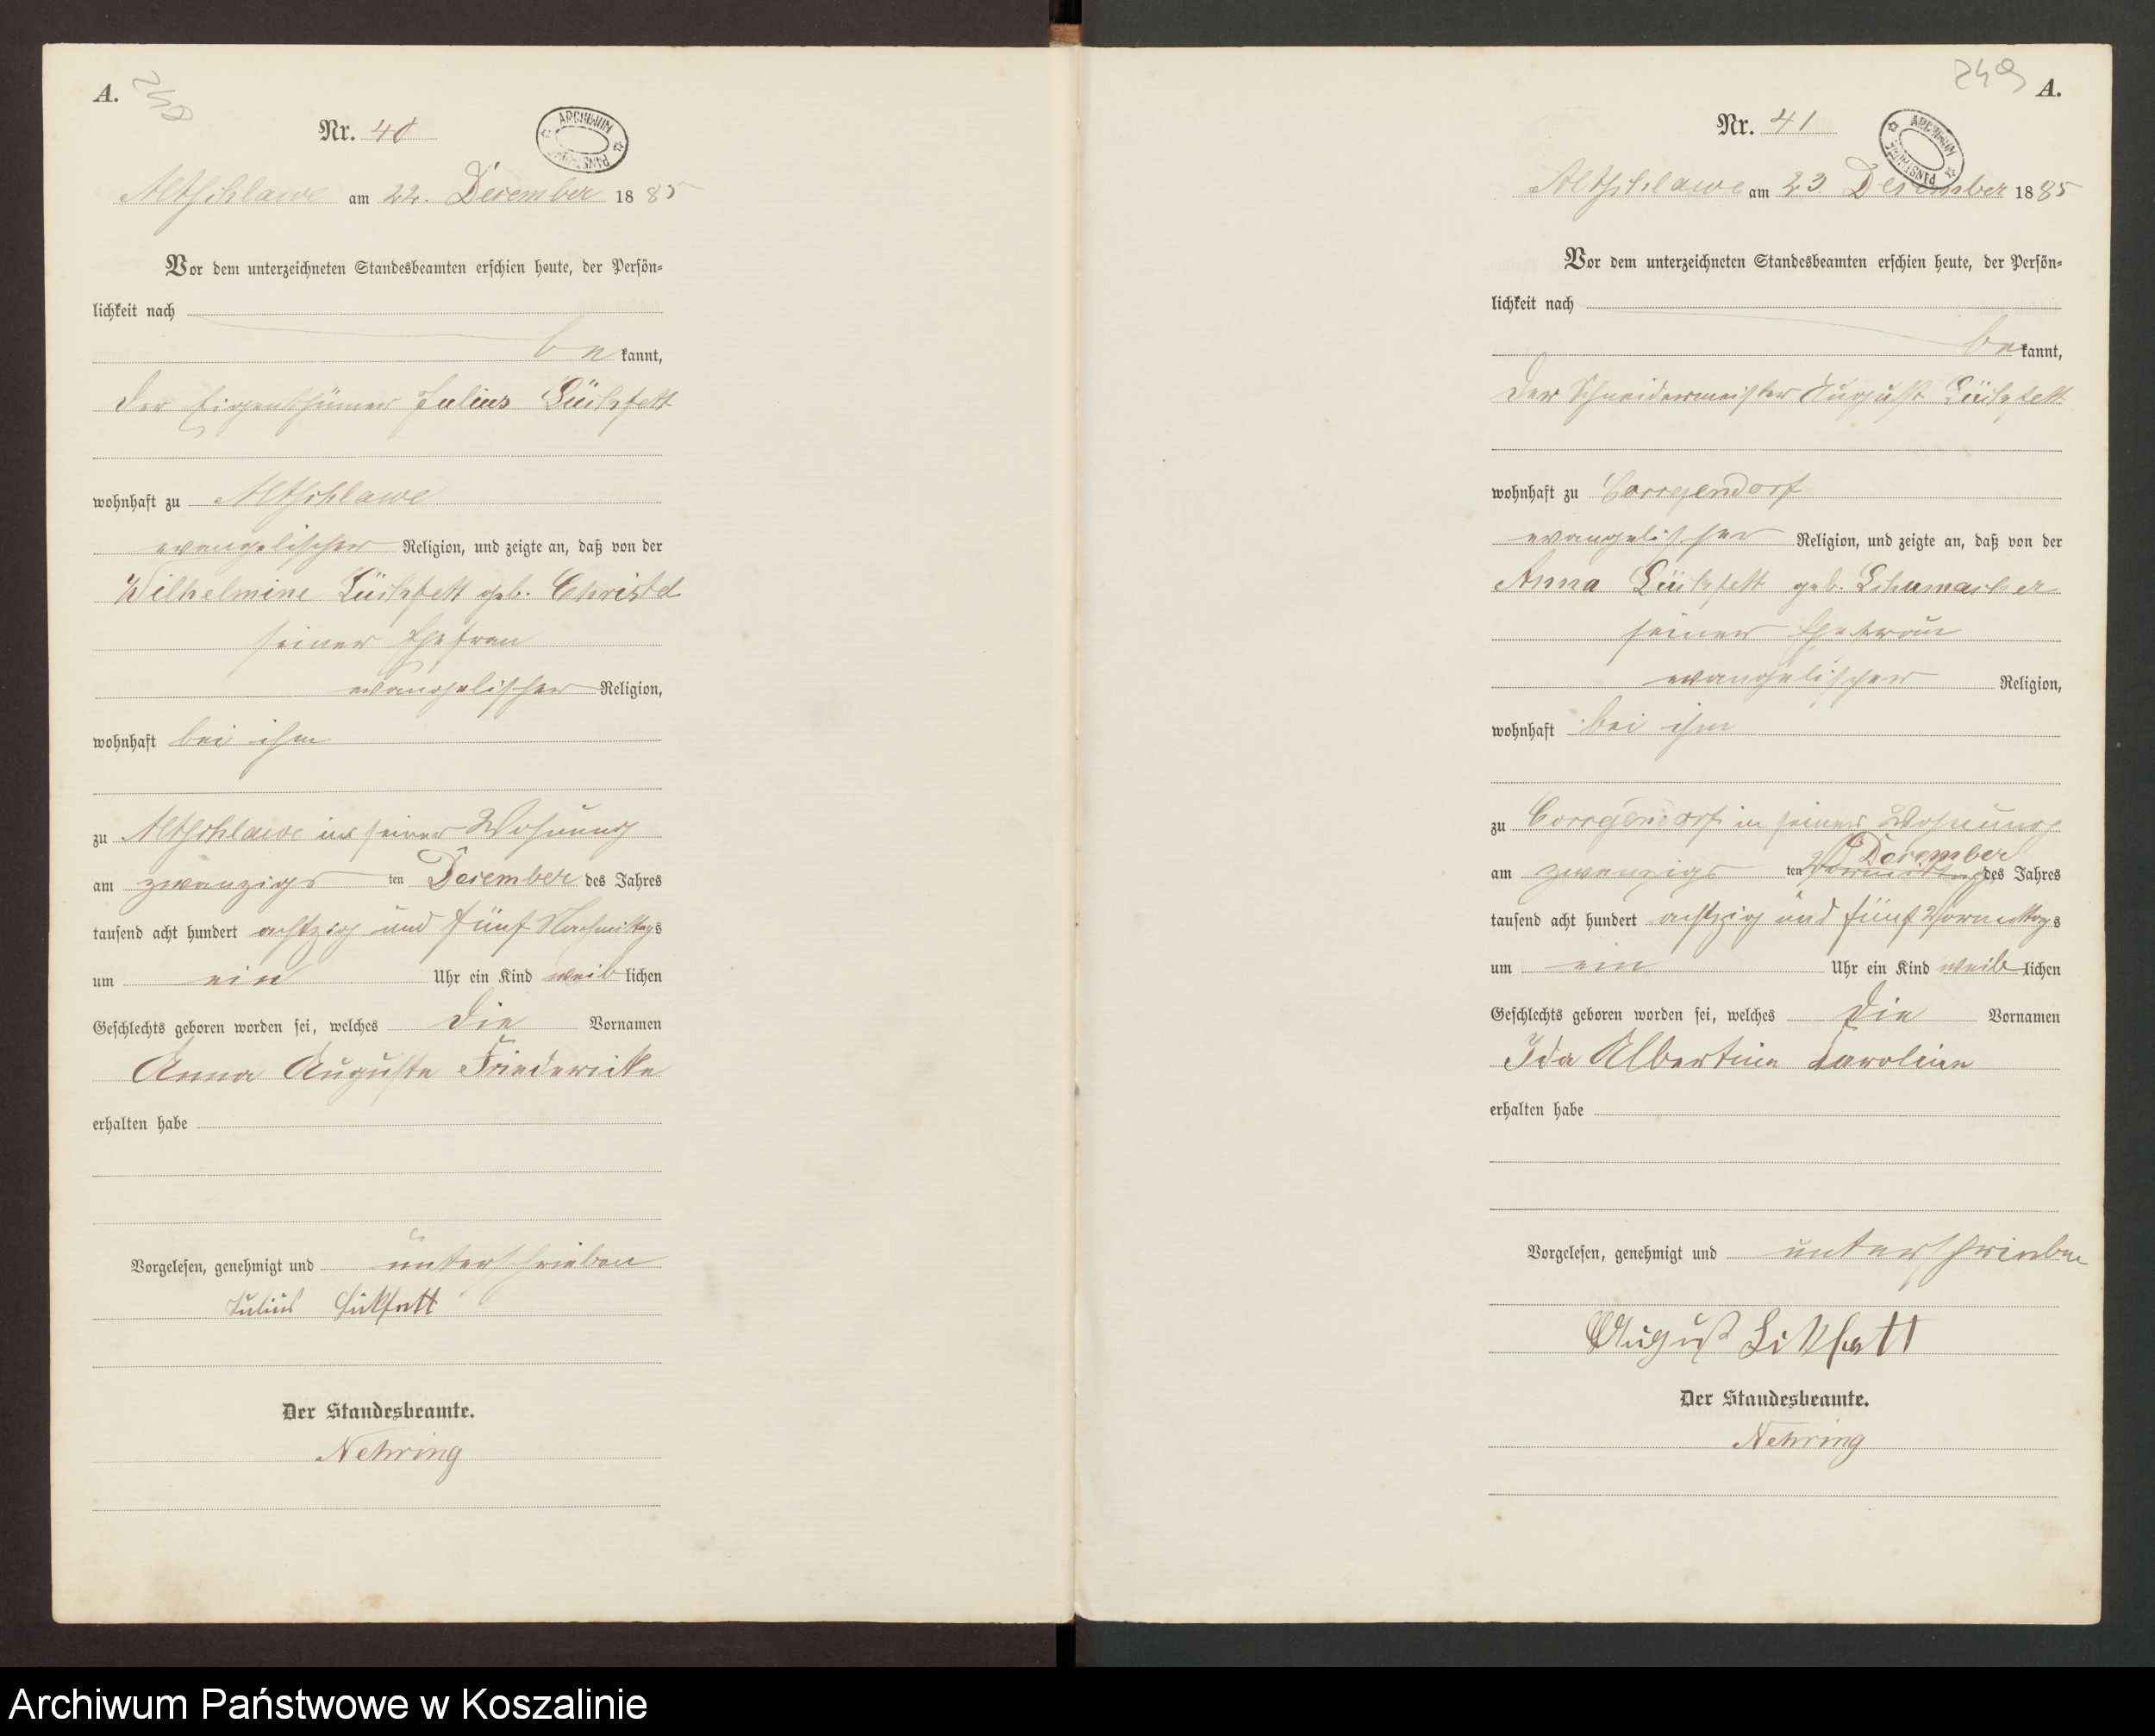 A.
248
Nr. 40
ARCHIWUM PAŃSTWOWE
Altschlawe am 22. December 1885
Vor dem unterzeichneten Standesbeamten erschien heute, der Persön-
lichkeit nach
be kannt,
der Eigenthümer Julius Lückfett
wohnhaft zu Altschlawe
evangelischer Religion, und zeigte an, daß von der
Wilhelmine Lückfett geb. Christel
seiner Ehefrau
evangelischer Religion,
wohnhaft bei ihm
zu Altschlawe in seiner Wohnung
am zwanzigs ten December des Jahres
tausend acht hundert achtzig und fünf Nachmittags
um ein Uhr ein Kind weib lichen
Geschlechts geboren worden sei, welches die Vornamen
Anna Auguste Friedericke
erhalten habe
Vorgelesen, genehmigt und unterschrieben
Julius Lükfett
Der Standesbeamte.
Nehring
249
A.
Nr. 41
ARCHIWUM PAŃSTWOWE
Altschlawe am 23 December 1885
Vor dem unterzeichneten Standesbeamten erschien heute, der Persön-
lichkeit nach
be kannt,
der Schneidermeister August Lückfett
wohnhaft zu Coccejendorf
evangelischer Religion, und zeigte an, daß von der
Anna Lückfett geb. Schumacher
seiner Ehefrau
evangelischer Religion,
wohnhaft bei ihm
zu Coccejendorf in seiner Wohnung
am zwanzigs ten Vormittags December des Jahres
tausend acht hundert achtzig und fünf Vormittags
um ein Uhr ein Kind weib lichen
Geschlechts geboren worden sei, welches die Vornamen
Ida Albertine Caroline
erhalten habe
Vorgelesen, genehmigt und unterschrieben
August Likfett
Der Standesbeamte.
Nehring
Archiwum Państwowe w Koszalinie